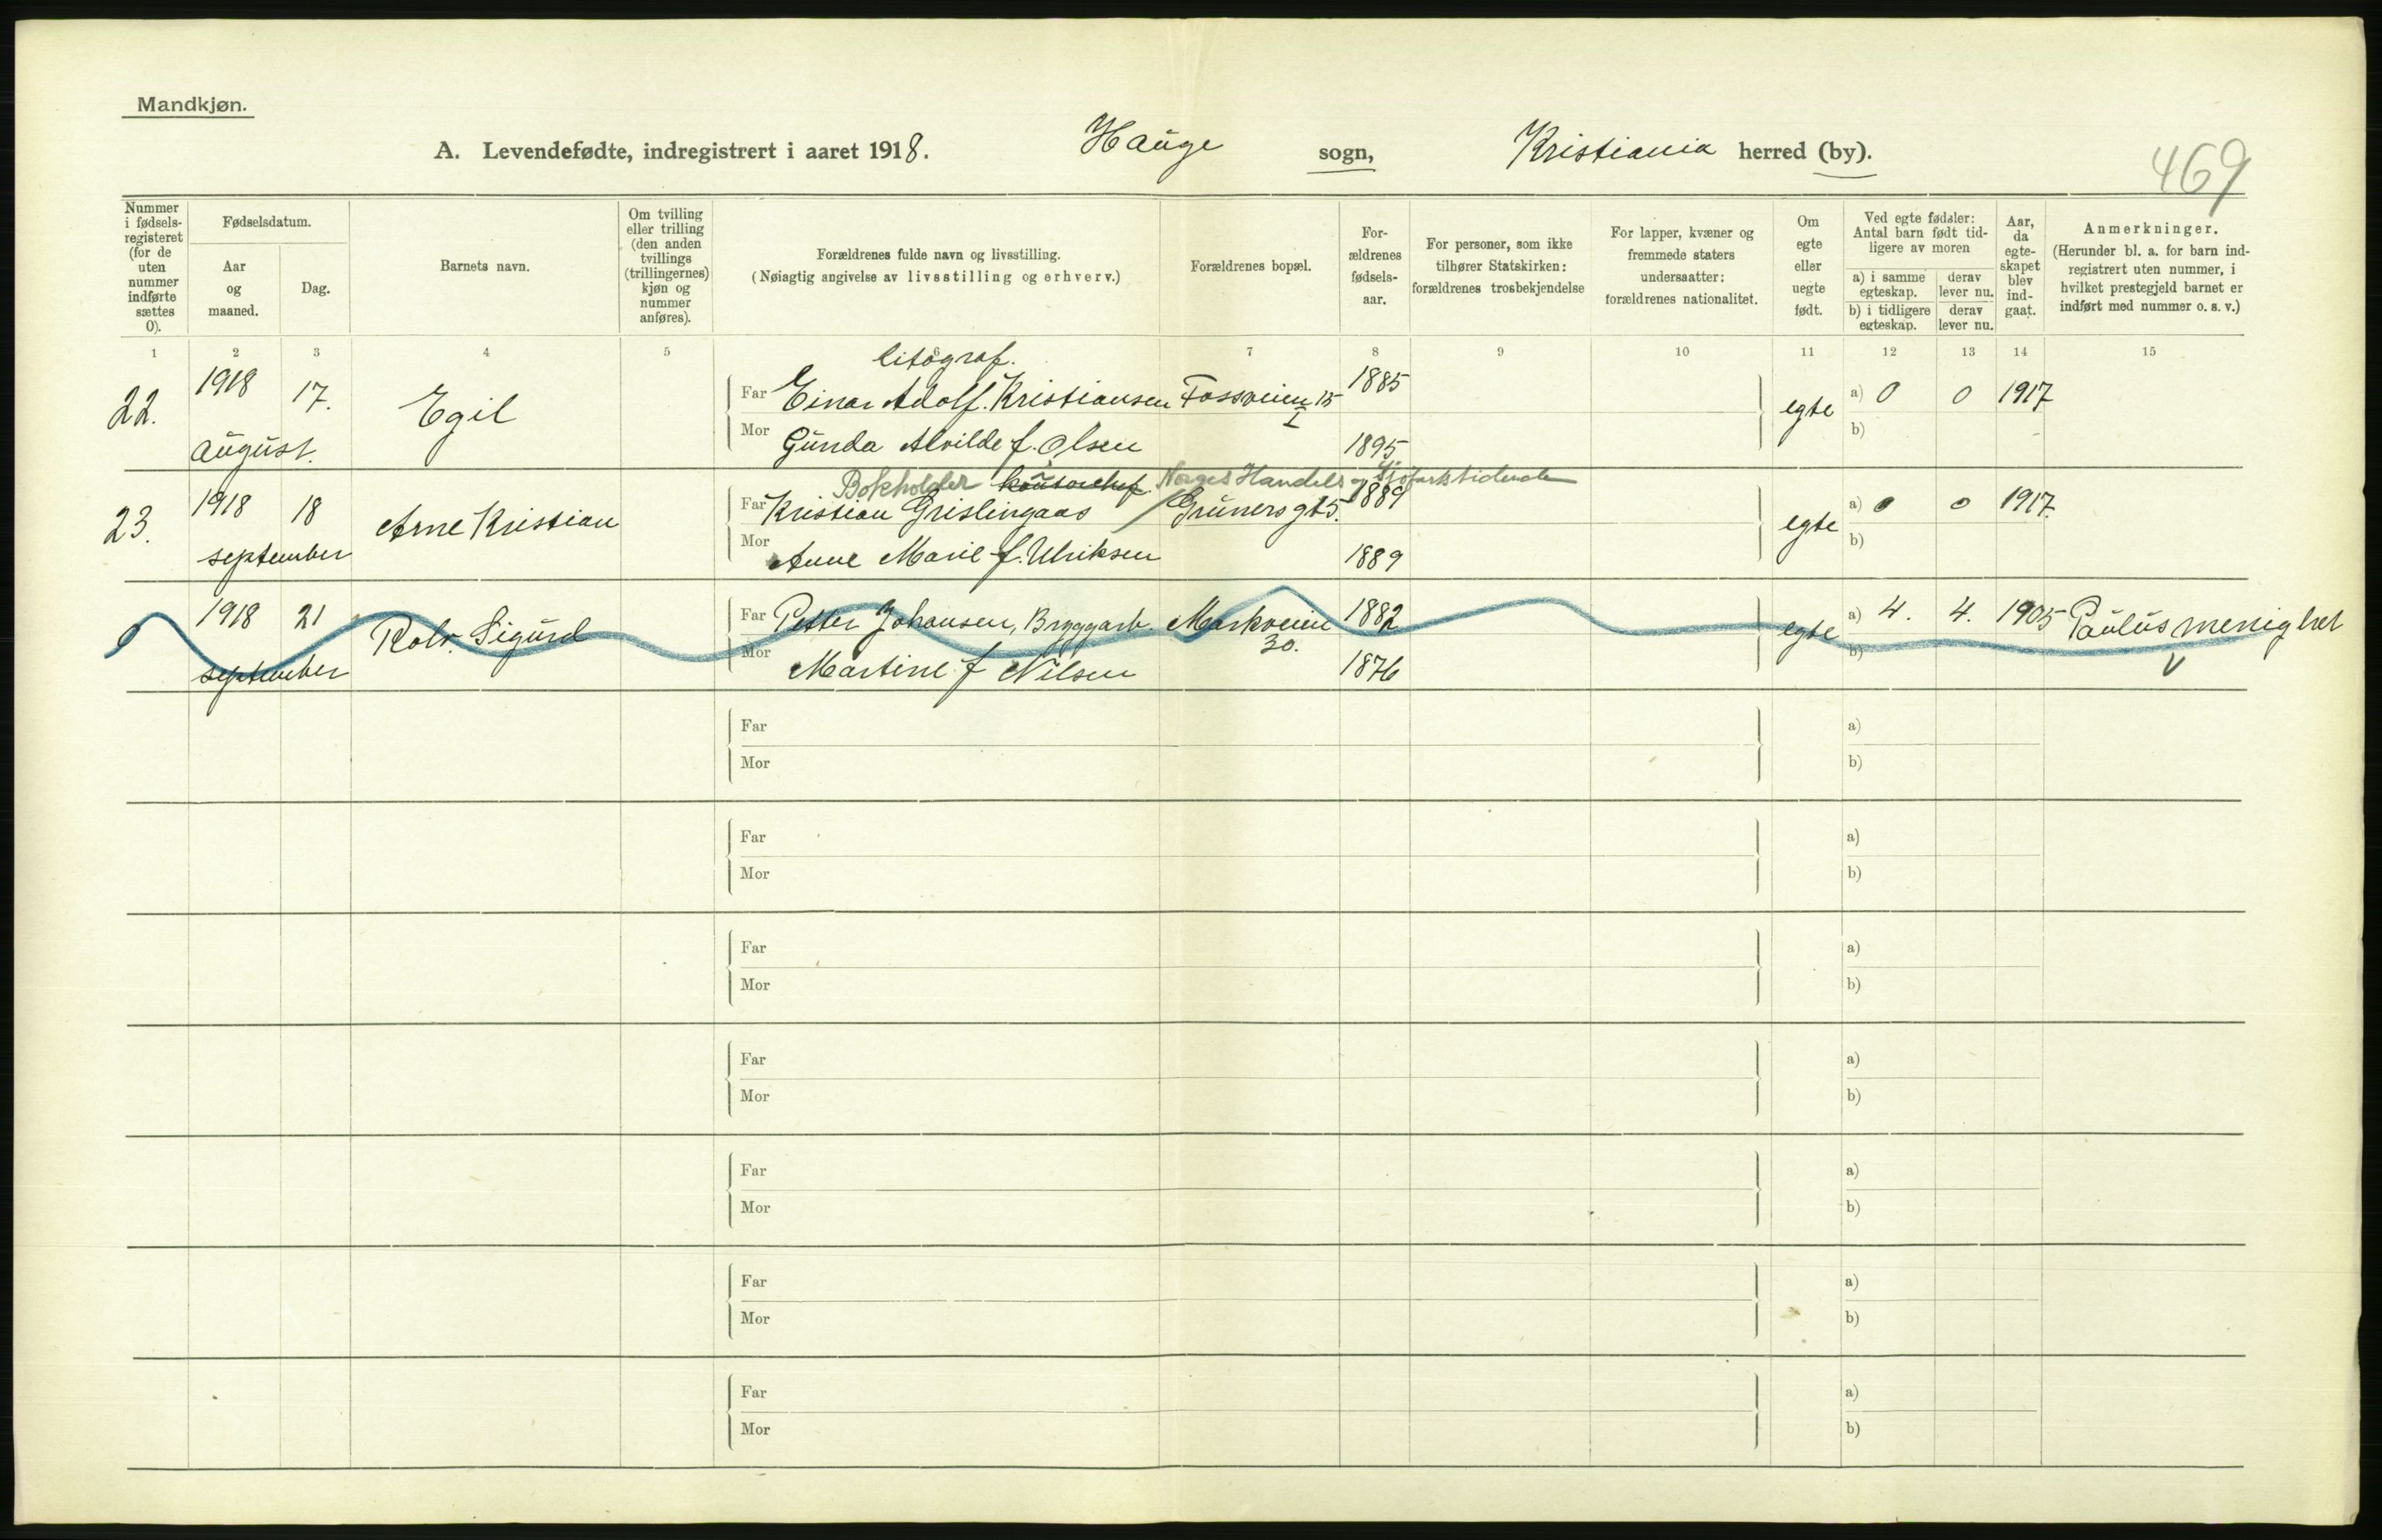 Mandkjøn.
A. Levendefødte, indregistrert i aaret 1918. Hauge sogn, Kristiania herred (by).
469
Nummer i fødsels-registeret (for de uten nummer indførte sættes 0).
Fødselsdatum.
Aar og maaned.
Dag.
Barnets navn.
Om tvilling eller trilling (den anden tvillings (trillingernes) kjøn og nummer anføres).
Forældrenes fulde navn og livsstilling.
(Nøiagtig angivelse av livsstilling og erhverv.)
Forældrenes bopæl.
For-ældrenes fødsels-aar.
For personer, som ikke tilhører Statskirken: forældrenes trosbekjendelse
For lapper, kvæner og fremmede staters undersaatter: forældrenes nationalitet.
Om egte eller uegte født.
Ved egte fødsler: Antal barn født tid-ligere av moren
a) i samme egteskap.
derav lever nu.
b) i tidligere egteskap.
derav lever nu.
Aar, da egte-skapet blev ind-gaat.
Anmerkninger.
(Herunder bl. a. for barn ind-registrert uten nummer, i hvilket prestegjeld barnet er indført med nummer o. s. v.)
1 2 3 4 5 6 7 8 9 10 11 12 13 14 15
litograf.
22. 1918 17. Egil Far Einar Adolf Kristiansen Fossveien 15 I 1885 egte a) 0 0 1917
august. Mor Gunda Alvilde f. Olsen 1895 b)
Bokholder kontorchef Norges Handels og Sjøfartstidende
23. 1918 18 Arne Kristian Far Kristian Grislingaas Grüners gt 5. 1889 egte a) 0 0 1917.
september Mor Anne Marie f. Ulriksen 1889 b)
0 1918 21 Rolv Sigurd Far Petter Johansen, Bryggarb. Markveien 30. 1882 egte a) 4. 4. 1905 Paulus menighet
september Mor Martine f Nilsen 1876 b)
Far a)
Mor b)
Far a)
Mor b)
Far a)
Mor b)
Far a)
Mor b)
Far a)
Mor b)
Far a)
Mor b)
Far a)
Mor b)